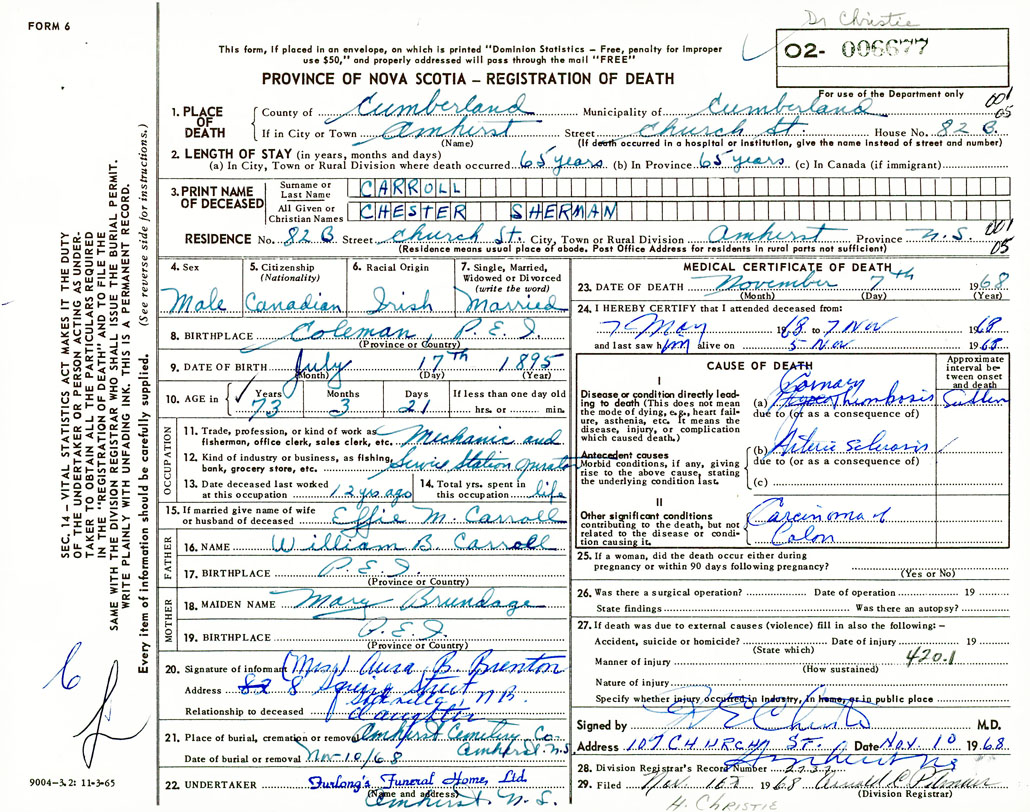 FORM 6
Dr Christie
O2- 006677
This form, if placed in an envelope, on which is printed "Dominion Statistics – Free, penalty for improper
use $50," and properly addressed will pass through the mail "FREE"
PROVINCE OF NOVA SCOTIA – REGISTRATION OF DEATH
For use of the Department only
001
05
1. PLACE OF DEATH
County of Cumberland Municipality of Cumberland
If in City or Town Amherst Street Church St. House No. 82 B.
(Name) (If death occurred in a hospital or institution, give the name instead of street and number)
2. LENGTH OF STAY (in years, months and days)
(a) In City, Town or Rural Division where death occurred 65 years (b) In Province 65 years (c) In Canada (if immigrant)
3. PRINT NAME OF DECEASED
Surname or Last Name CARROLL
All Given or Christian Names CHESTER SHERMAN
RESIDENCE No. 82 B Street Church St. City, Town or Rural Division Amherst Province N.S.
001
05
(Residence means usual place of abode. Post Office Address for residents in rural parts not sufficient)
4. Sex
Male
5. Citizenship
(Nationality)
Canadian
6. Racial Origin
Irish
7. Single, Married,
Widowed or Divorced
(write the word)
Married
8. BIRTHPLACE Coleman, P.E.I.
(Province or Country)
9. DATE OF BIRTH July 17th 1895
(Month) (Day) (Year)
10. AGE in
Years Months Days If less than one day old
73 3 21 hrs. or min.
OCCUPATION
11. Trade, profession, or kind of work as
fisherman, office clerk, sales clerk, etc. Mechanic and
12. Kind of industry or business, as fishing,
bank, grocery store, etc. Service Station operator
13. Date deceased last worked
at this occupation 12 yrs. ago
14. Total yrs. spent in
this occupation life
15. If married give name of wife
or husband of deceased Effie M. Carroll
FATHER
16. NAME William B. Carroll
17. BIRTHPLACE P.E.I.
(Province or Country)
MOTHER
18. MAIDEN NAME Mary Brundage
19. BIRTHPLACE P.E.I.
(Province or Country)
20. Signature of informant (Mrs) B. Brenton
Address 82 8 Squire Street
Sackville, N.B.
Relationship to deceased daughter
21. Place of burial, cremation or removal Amherst Cemetery Co.
Amherst N.S.
Date of burial or removal Nov-10/68
22. UNDERTAKER Furlong's Funeral Home, Ltd
(Name and address)
Amherst, N.S.
MEDICAL CERTIFICATE OF DEATH
23. DATE OF DEATH November 7th 1968
(Month) (Day) (Year)
24. I HEREBY CERTIFY that I attended deceased from:
7 May 1968 to 7 Nov 1968
and last saw him alive on 5 Nov 1968
CAUSE OF DEATH
Approximate
interval be-
tween onset
and death
I
Disease or condition directly lead-
ing to death (This does not mean
the mode of dying, e.g., heart fail-
ure, asthenia, etc. It means the
disease, injury, or complication
which caused death.)
(a) Coronary thrombosis Sudden
due to (or as a consequence of)
Antecedent causes
Morbid conditions, if any, giving
rise to the above cause, stating
the underlying condition last.
(b) Arterio sclerosis
due to (or as a consequence of)
(c)
II
Other significant conditions
contributing to the death, but not
related to the disease or condi-
tion causing it.
Carcinoma of
Colon
25. If a woman, did the death occur either during
pregnancy or within 90 days following pregnancy?
(Yes or No)
26. Was there a surgical operation? Date of operation 19
State findings Was there an autopsy?
27. If death was due to external causes (violence) fill in also the following: –
Accident, suicide or homicide? Date of injury 19
(State which)
Manner of injury 420.1
(How sustained)
Nature of injury
Specify whether injury occurred in industry, in home, or in public place
Signed by Christie M.D.
Address 107 CHURCH ST. Date Nov. 10 1968
Amherst N.S.
28. Division Registrar's Record Number
29. Filed Nov. 1968 Arnold
(Division Registrar)
H. CHRISTIE
SEC. 14 – VITAL STATISTICS ACT MAKES IT THE DUTY
OF THE UNDERTAKER OR PERSON ACTING AS UNDER-
TAKER TO OBTAIN ALL THE PARTICULARS REQUIRED
IN THE "REGISTRATION OF DEATH" AND TO FILE THE
SAME WITH THE DIVISION REGISTRAR WHO SHALL ISSUE THE BURIAL PERMIT.
WRITE PLAINLY WITH UNFADING INK. THIS IS A PERMANENT RECORD.
Every item of information should be carefully supplied. (See reverse side for instructions.)
9004-3.2: 11-3-65